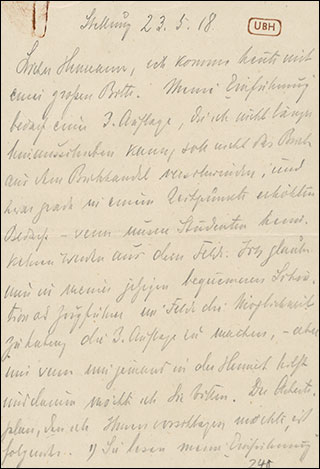 Stellung 23.5.18.
UBH
Lieber Hermann, ich komme heute mit
einer großen Bitte. Meine Einführung
bedarf einer 3. Auflage, die ich nicht länger
hinausschieben kann, soll nicht das Buch
aus dem Buchhandel verschwinden, und
zwar grade in einem Zeitpunkte erhöhten
Bedarfs – wenn unsere Studenten heim-
kehren werden aus dem Felde. Ich glaube
nun in meiner jetzigen bequemeren Situa-
tion als Zugführer im Felde die Möglichkeit
zu haben, die 3. Auflage zu machen, – aber
nur wenn mir jemand in der Heimat hilft
und darum möchte ich Sie bitten. Der Arbeits-
plan, den ich Ihnen vorschlagen möchte, ist
folgender. 1) Sie lesen meine "Einführung"
740